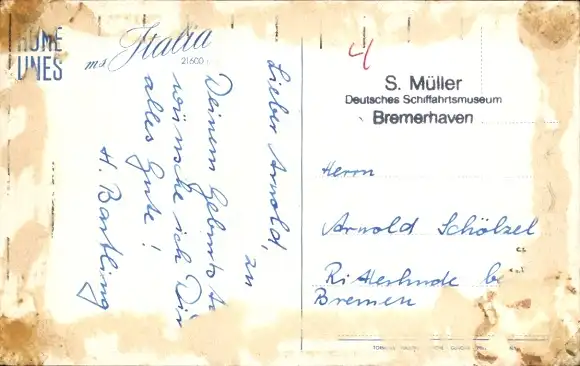 HOME
LINES
ms Italia
21600
Lieber Arnold,
zu
Deinem Geburtsta
wünsche ich Dir
alles Gute!
H. Bartling
4
S. Müller
Deutsches Schiffahrtsmuseum
Bremerhaven
Herrn
Arnold Schölzel
Ritterhude be
Bremen